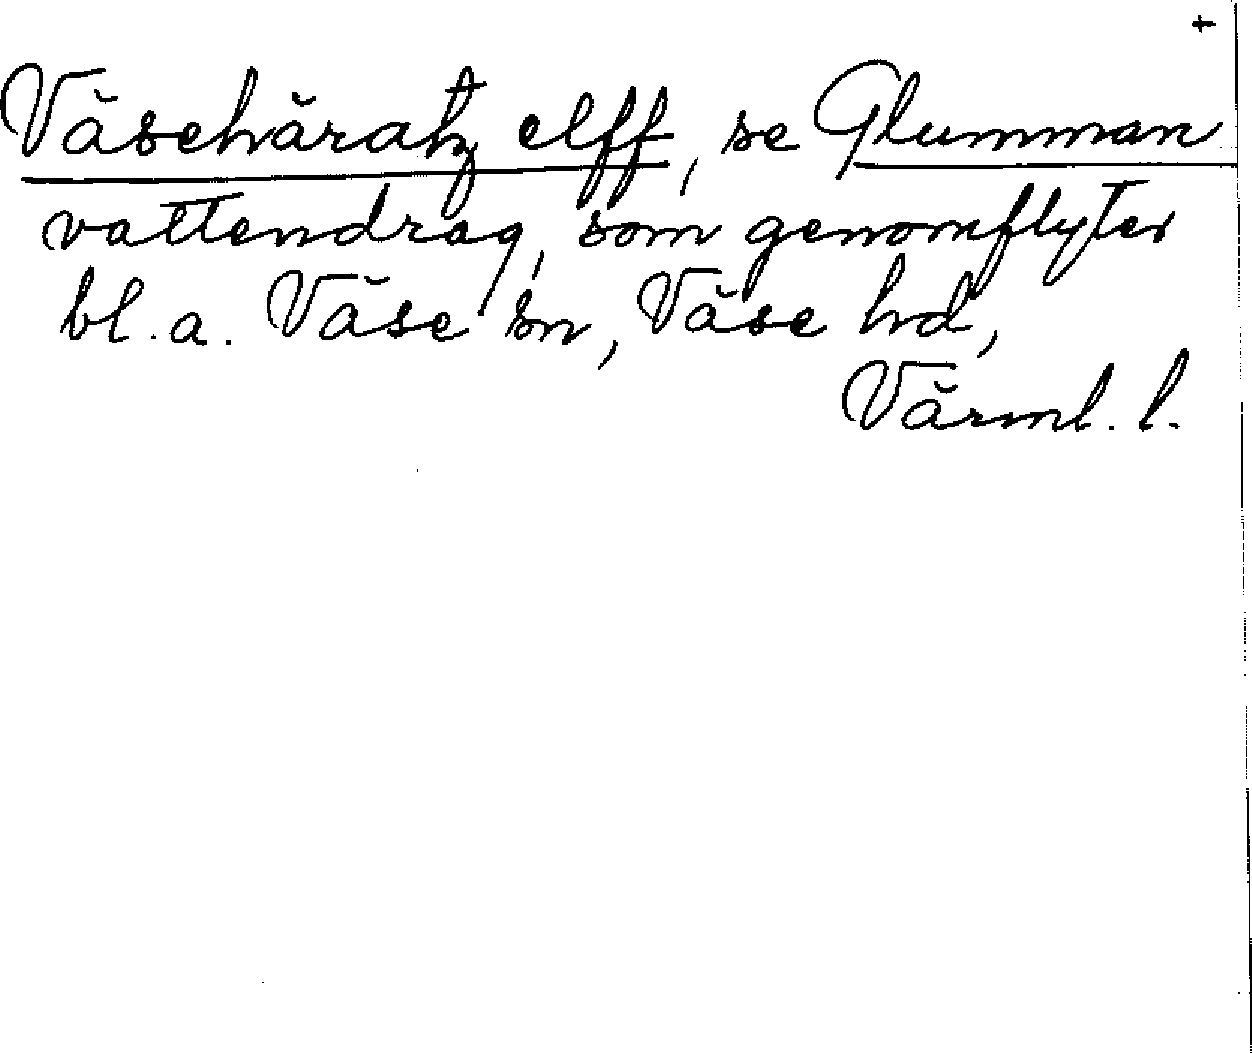 †
Väsehäratz elff, se Glumman
vattendrag, som genomflyter
bl.a. Väse sn, Väse hd,
Värml. l.